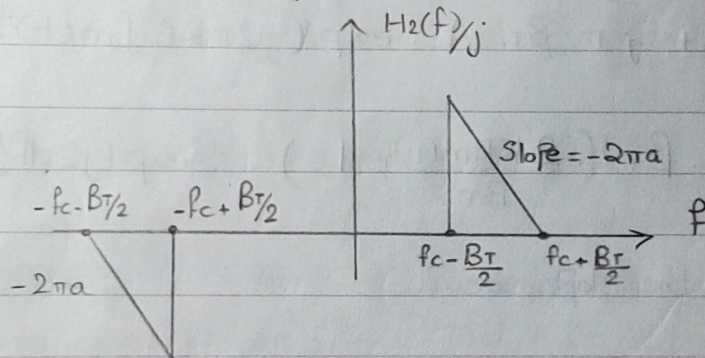 H₂(f)/j
Slope = -2πa
-fc-BT/2
-fc+BT/2
f
fc-BT/2
fc+BT/2
-2πa